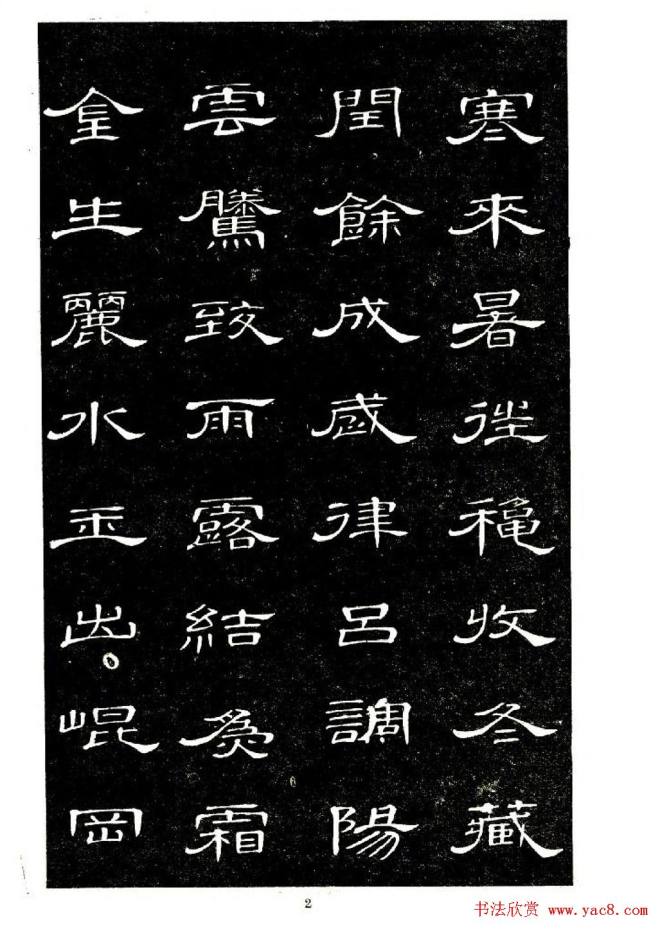 寒來暑往秋收冬藏
閏餘成歲律呂調陽
雲騰致雨露結為霜
金生麗水玉出崐岡
6
2
书法欣赏 www.yac8.com